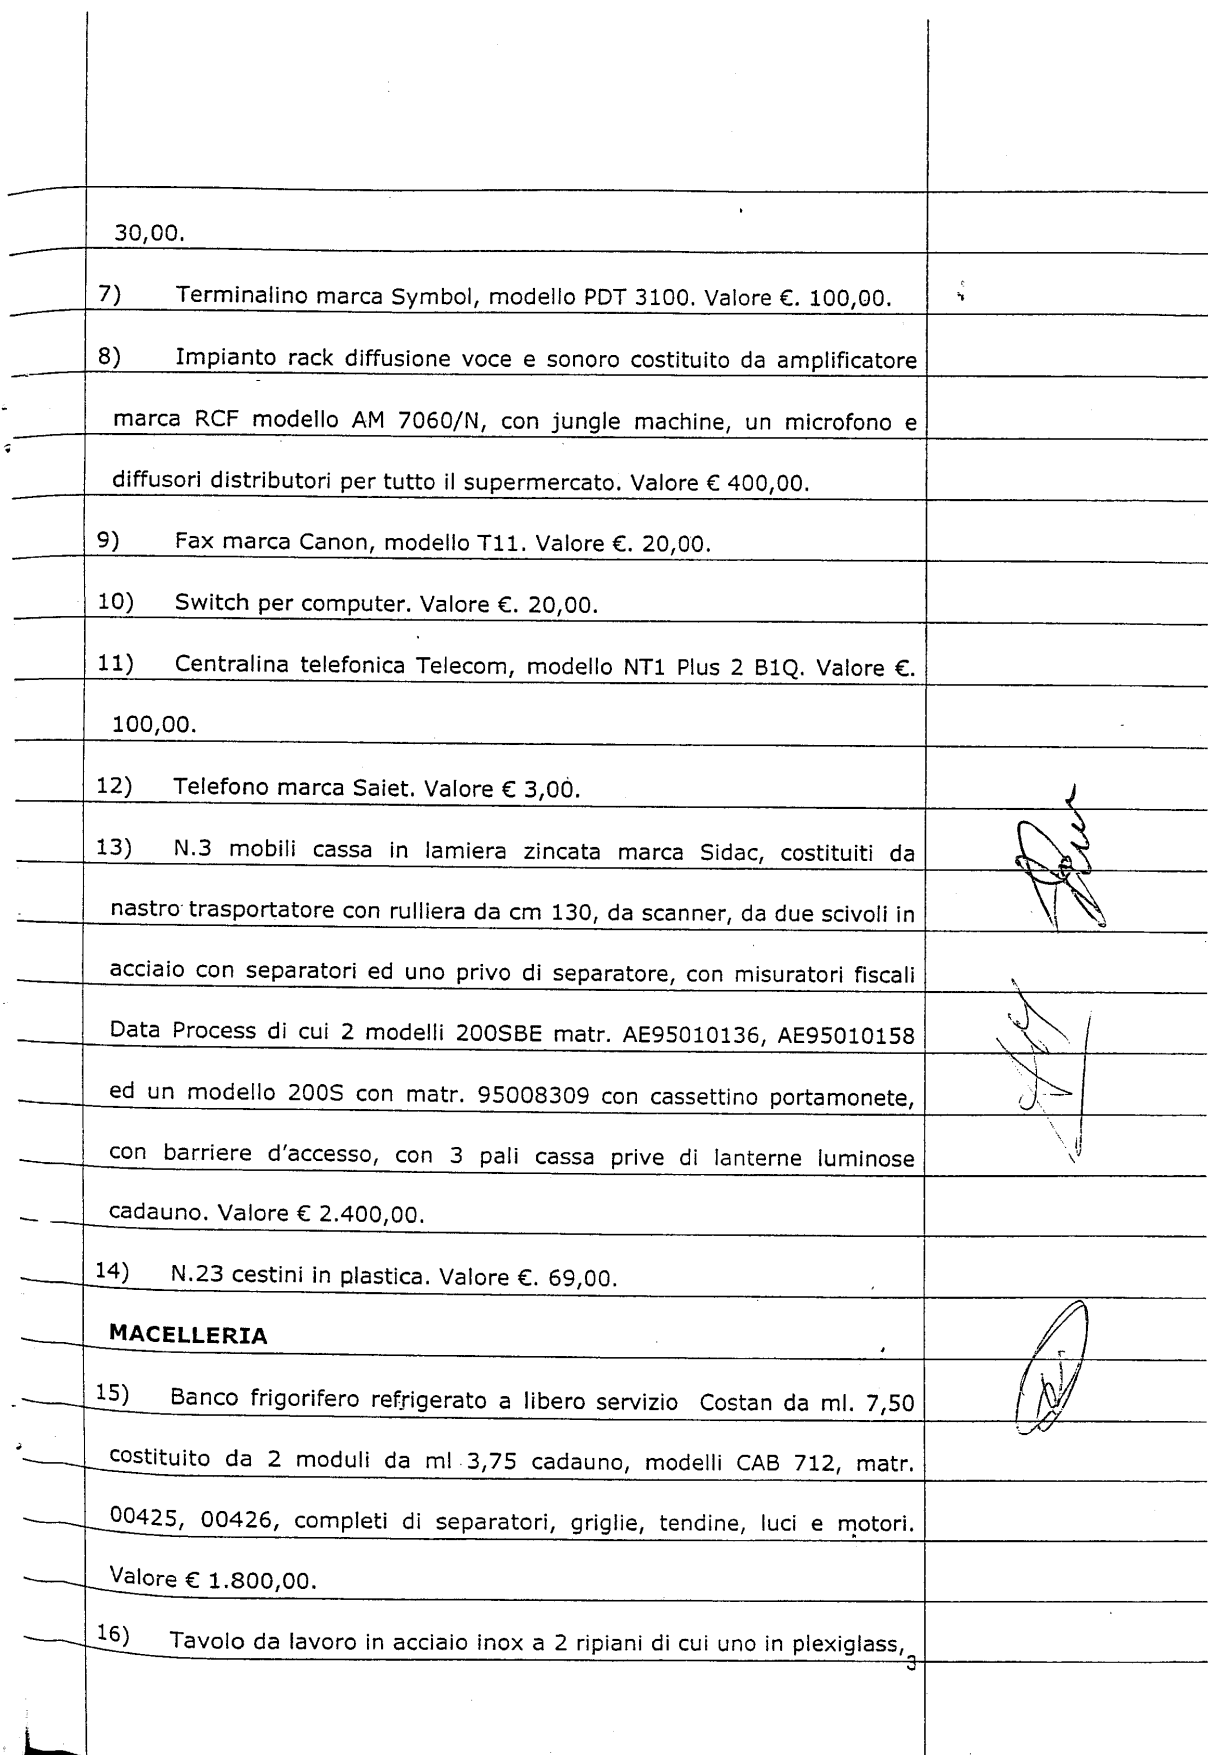 30,00.
7) Terminalino marca Symbol, modello PDT 3100. Valore €. 100,00.
8) Impianto rack diffusione voce e sonoro costituito da amplificatore
marca RCF modello AM 7060/N, con jungle machine, un microfono e
diffusori distributori per tutto il supermercato. Valore € 400,00.
9) Fax marca Canon, modello T11. Valore €. 20,00.
10) Switch per computer. Valore €. 20,00.
11) Centralina telefonica Telecom, modello NT1 Plus 2 B1Q. Valore €.
100,00.
12) Telefono marca Saiet. Valore € 3,00.
13) N.3 mobili cassa in lamiera zincata marca Sidac, costituiti da
nastro trasportatore con rulliera da cm 130, da scanner, da due scivoli in
acciaio con separatori ed uno privo di separatore, con misuratori fiscali
Data Process di cui 2 modelli 200SBE matr. AE95010136, AE95010158
ed un modello 200S con matr. 95008309 con cassettino portamonete,
con barriere d'accesso, con 3 pali cassa prive di lanterne luminose
cadauno. Valore € 2.400,00.
14) N.23 cestini in plastica. Valore €. 69,00.
MACELLERIA
15) Banco frigorifero refrigerato a libero servizio Costan da ml. 7,50
costituito da 2 moduli da ml 3,75 cadauno, modelli CAB 712, matr.
00425, 00426, completi di separatori, griglie, tendine, luci e motori.
Valore € 1.800,00.
16) Tavolo da lavoro in acciaio inox a 2 ripiani di cui uno in plexiglass,
3